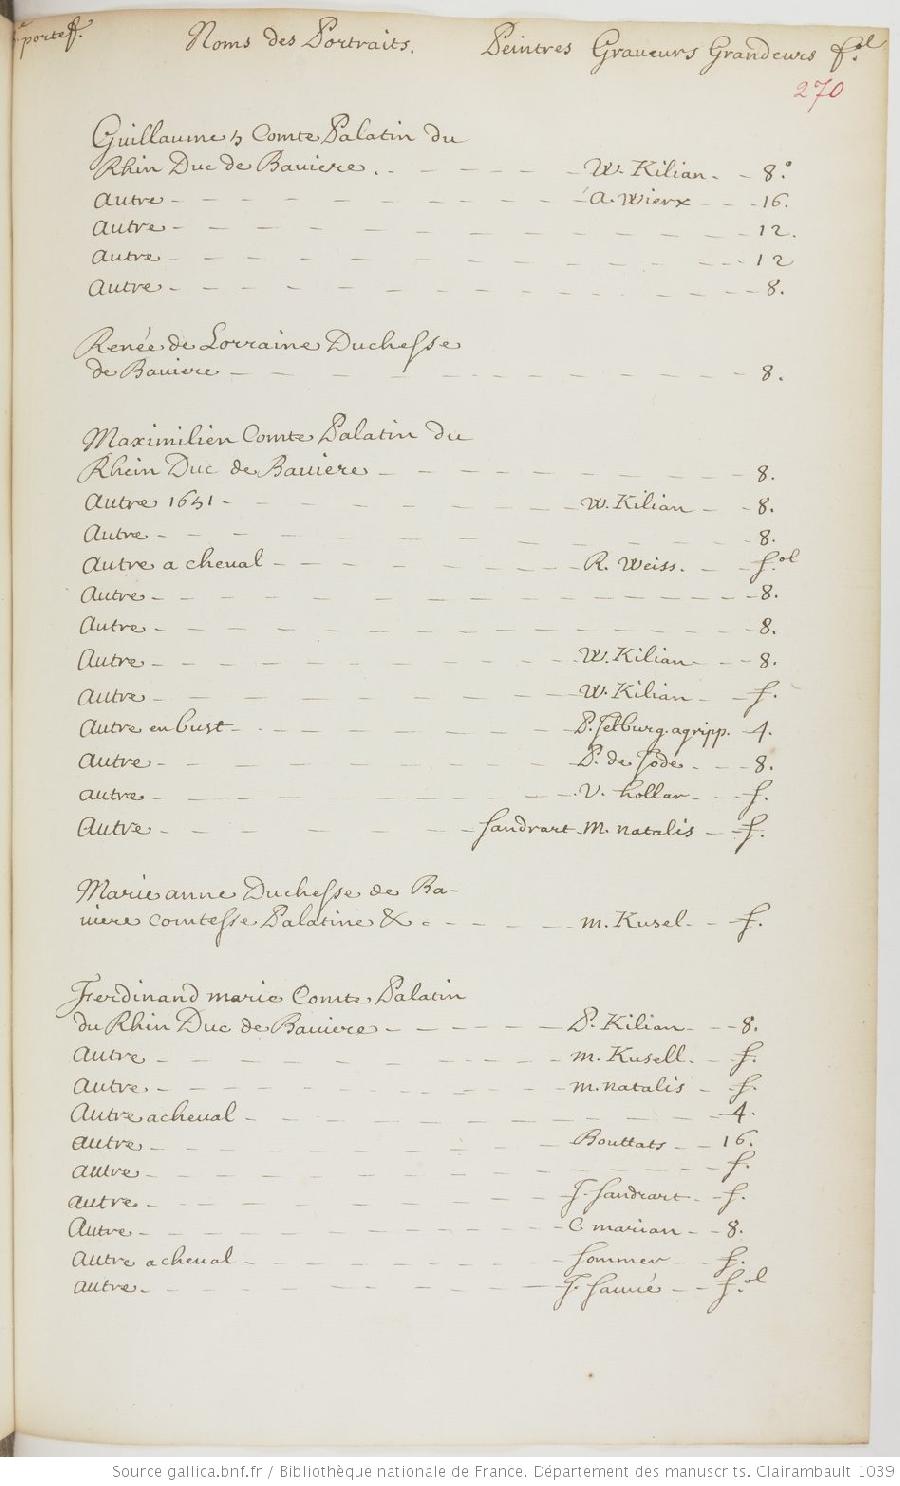 portef. Noms des Portraits. Peintres Graveurs Grandeurs f.ol
270
Guillaume 5 Comte Palatin du
Rhin Duc de Baviere. W. Kilian. 8.o
Autre A. Wierx 16.
Autre 12.
Autre 12
Autre 8.
Renée de Lorraine Duchesse
de Baviere 8.
Maximilien Comte Palatin du
Rhein Duc de Baviere 8.
Autre 1651 W. Kilian 8.
Autre 8.
Autre a cheval R. Weiss. f.ol
Autre 8.
Autre 8.
Autre W. Kilian 8.
Autre W. Kilian f.
Autre en bust P. Jselburg. agripp. 4.
Autre P. de Jode 8.
autre V. hollar f.
Autre Sandrart M. natalis f.
Marie anne Duchesse de Ba-
viere comtesse Palatine &c. m. Kusel f.
Ferdinand marie Comte Palatin
du Rhin Duc de Baviere P. Kilian 8.
Autre m. Kusell. f.
Autre. m. natalis f.
Autre a cheval 4.
autre Bouttats 16.
autre f.
autre. J. Sandrart f.
Autre C marian 8.
Autre a cheval Sommer f.
autre. J. Sauvé f.ol
Source gallica.bnf.fr / Bibliothèque nationale de France. Département des manuscrits. Clairambault 1039